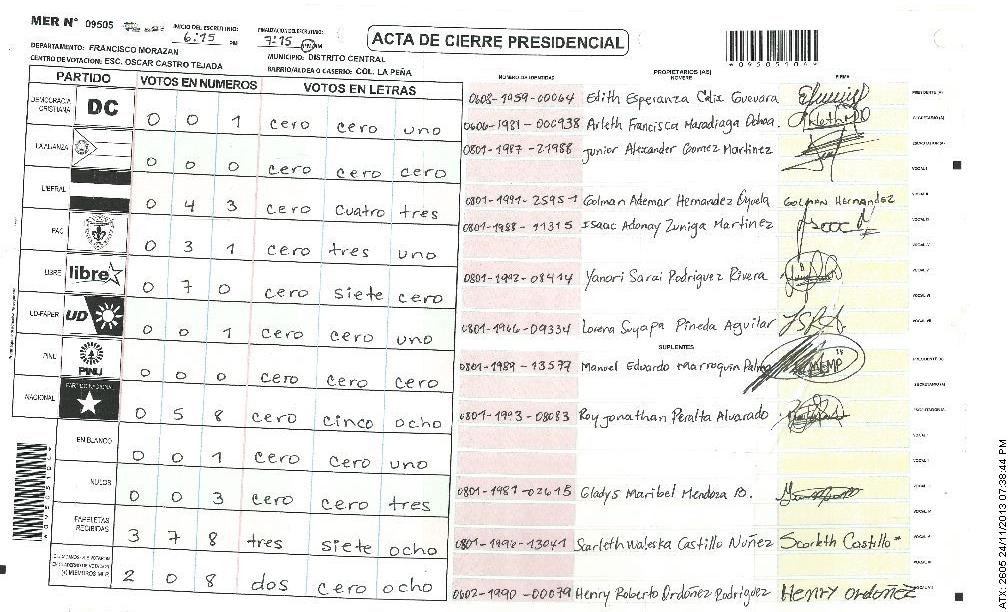 MER N° 09505
INICIO DEL ESCRUTINIO:
6:15 PM
FINALIZACION DEL ESCRUTINIO:
7:15 PM
ACTA DE CIERRE PRESIDENCIAL
DEPARTAMENTO: FRANCISCO MORAZAN
MUNICIPIO: DISTRITO CENTRAL
CENTRO DE VOTACION: ESC. OSCAR CASTRO TEJADA
BARRIO/ALDEA O CASERIO: COL. LA PEÑA
PARTIDO VOTOS EN NUMEROS VOTOS EN LETRAS
DEMOCRACIA CRISTIANA DC 0 0 1 cero cero uno
LA ALIANZA 0 0 0 cero cero cero
LIBERAL 0 4 3 cero cuatro tres
PAC 0 3 1 cero tres uno
LIBRE libre 0 7 0 cero siete cero
UD-FAPER UD 0 0 1 cero cero uno
PINU PINU 0 0 0 cero cero cero
NACIONAL PARTIDO NACIONAL 0 5 8 cero cinco ocho
EN BLANCO 0 0 1 cero cero uno
NULOS 0 0 3 cero cero tres
PAPELETAS RECIBIDAS 3 7 8 tres siete ocho
(+) MIEMBROS MER 2 0 8 dos cero ocho
NUMERO DE IDENTIDAD PROPIETARIOS (AS) NOMBRE FIRMA
0608-1959-00064 Edith Esperanza Calix Guevara PRESIDENTE (A)
0606-1981-000938 Arleth Francisca Maradiaga Ochoa. SECRETARIO (A)
0801-1987-21988 Junior Alexander Gomez Martinez ESCRUTADOR (A)
VOCAL I
0801-1991-25951 Golman Ademar Hernandez Oyuela GOLMAN HERNANDEZ VOCAL II
0801-1988-11315 Isaac Adonay Zuniga Martinez Isaac VOCAL III
VOCAL IV
0801-1992-08414 Yanori Sarai Rodriguez Rivera VOCAL V
VOCAL VI
0801-1966-09334 Lorena Suyapa Pineda Aguilar VOCAL VII
SUPLENTES
0801-1989-13577 Manuel Eduardo Marroquin Palma MEMP PRESIDENTE (A)
SECRETARIO (A)
0801-1993-08083 Roy Jonathan Peralta Alvarado ESCRUTADOR (A)
VOCAL I
VOCAL II
0801-1981-02615 Gladys Maribel Mendoza B. VOCAL III
VOCAL IV
0801-1996-13041 Scarleth Waleska Castillo Nuñez Scarleth Castillo* VOCAL V
VOCAL VI
0602-1990-00079 Henry Roberto Ordoñez Rodriguez Henry Ordoñez VOCAL VII
24/11/2013 07:38:44 PM